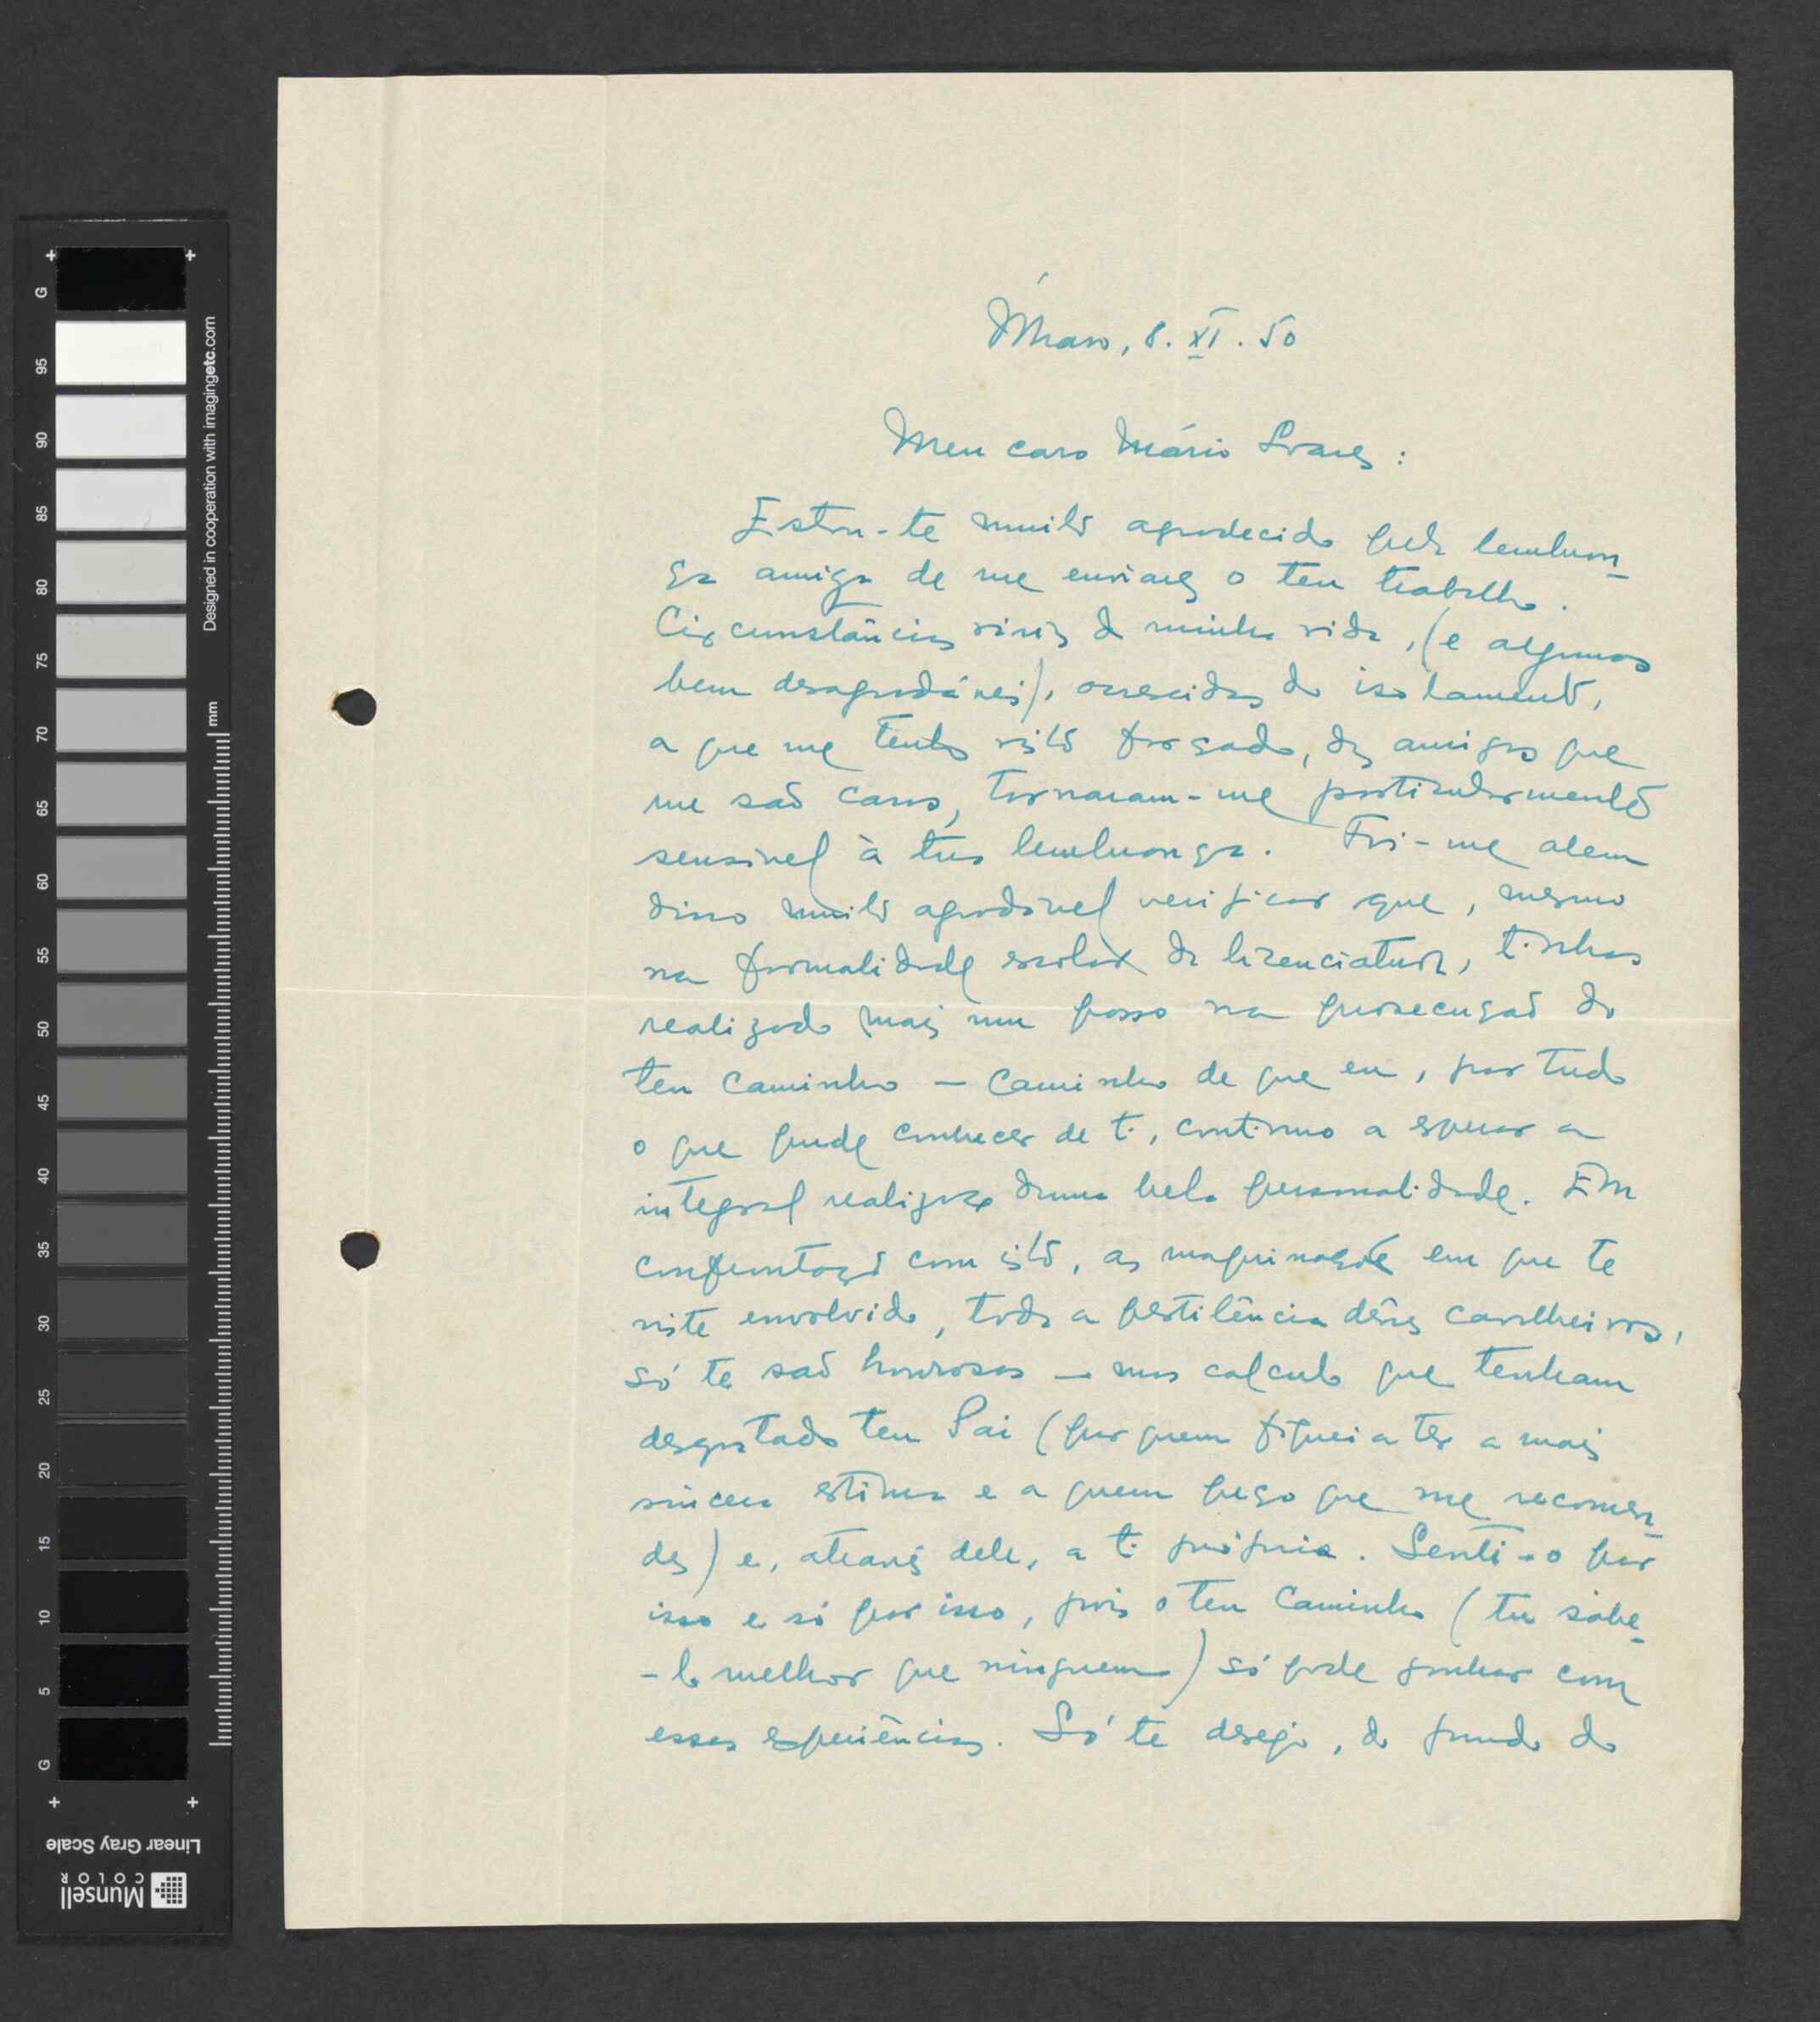 8. XI. 50
Meu caro Mário Soares:
Estou-te muito agradecido pela lembran-
ça amiga de me enviares o teu trabalho.
Circunstâncias várias da minha vida, (e algumas
bem desagradáveis), acrescidas do isolamento,
a que me tenho visto forçado, dos amigos que
me são caros, tornaram-me particularmente
sensível à tua lembrança. Foi-me alem
disso muito agradável verificar que, mesmo
na formalidade escolar da licenciatura, tinhas
realizado mais um passo na prossecução do
teu caminho — caminho de que eu, por tudo
o que pude conhecer de ti, continuo a esperar a
integral realização duma bela personalidade. Em
confrontação com isto, as maquinações em que te
viste envolvido, toda a pestilência dêsses cavalheiros,
só te são honrosas — mas calculo que tenham
desgostado teu Pai (por quem fiquei a ter a mais
sincera estima e a quem peço que me recomen-
des) e, através dele, a ti próprio. Senti-o por
isso e só por isso, pois o teu caminho (tu sabe-
-lo melhor que ninguem) só pode ganhar com
essas experiências. Só te desejo, do fundo do
G
95
90
85
80
75
70
65
60
55
50
45
40
35
30
25
20
15
10
5
G
mm
Designed in cooperation with imagingetc.com
Linear Gray Scale
Munsell
COLOR